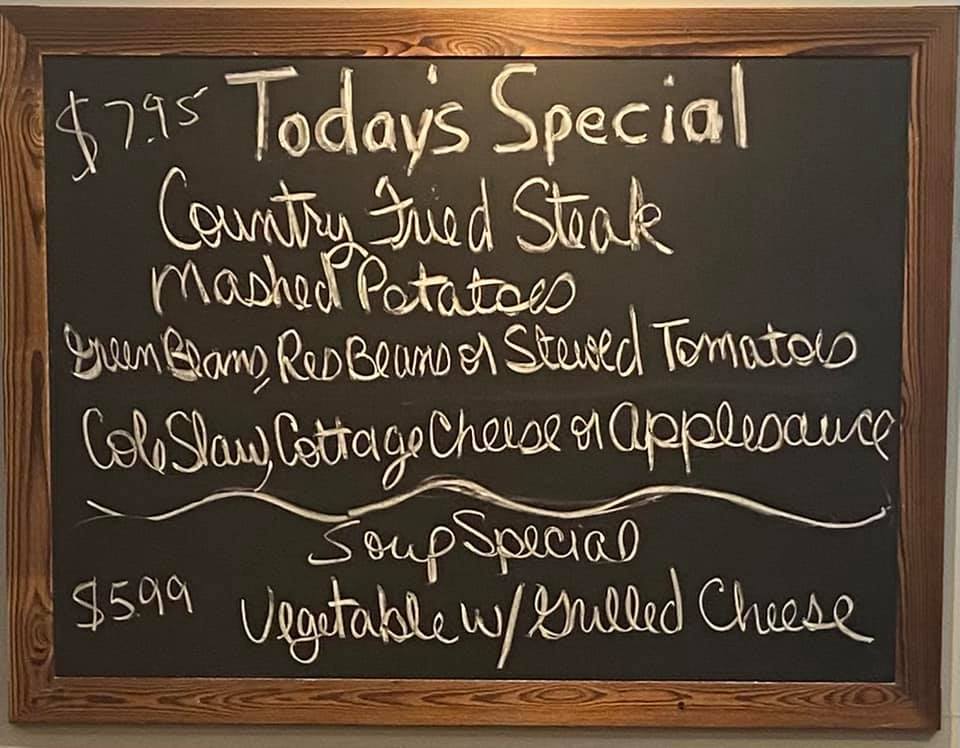 $7.95 Today's Special
Country Fried Steak
Mashed Potatoes
Green Beans, Red Beans or Stewed Tomatoes
Cole Slaw, Cottage Cheese or Applesauce
Soup Special
$5.99 Vegetable w/ Grilled Cheese